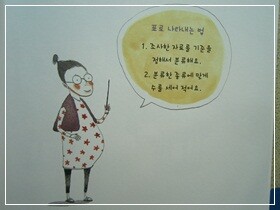 표로 나타내는 법
1. 조사한 자료를 기준을
정해서 분류해요.
2. 분류한 종류에 맞게
수를 세어 적어요.